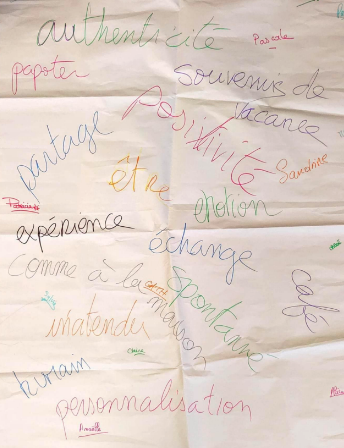 authenticité
Pascale
papoter
souvenirs de
vacance
Positivité
partage
Sandrine
être
émotion
expérience
échange
comme à la
maison
spontanné
café
inatendu
humain
personnalisation